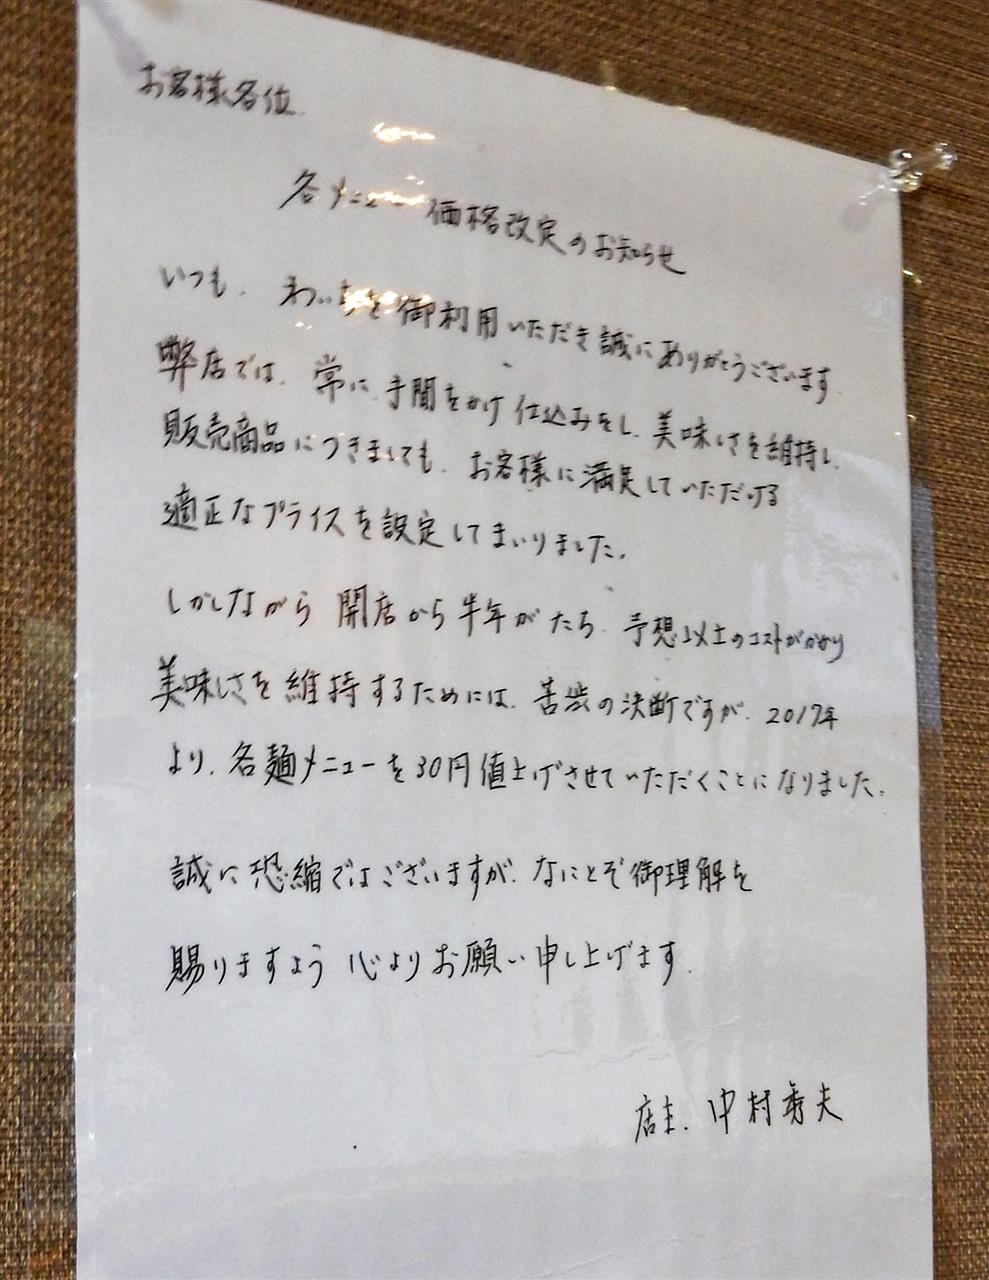 お客様各位
各メニュー価格改定のお知らせ
いつも、わいちを御利用いただき誠にありがとうございます
弊店では、常に手間をかけ仕込みをし、美味しさを維持し、
販売商品につきましても、お客様に満足していただける
適正なプライスを設定してまいりました。
しかしながら開店から半年がたち、予想以上のコストがかかり
美味しさを維持するためには、苦渋の決断ですが、2017年
より、各麺メニューを30円値上げさせていただくことになりました。
誠に恐縮ではございますが、なにとぞ御理解を
賜りますよう心よりお願い申し上げます。
店主、中村秀夫